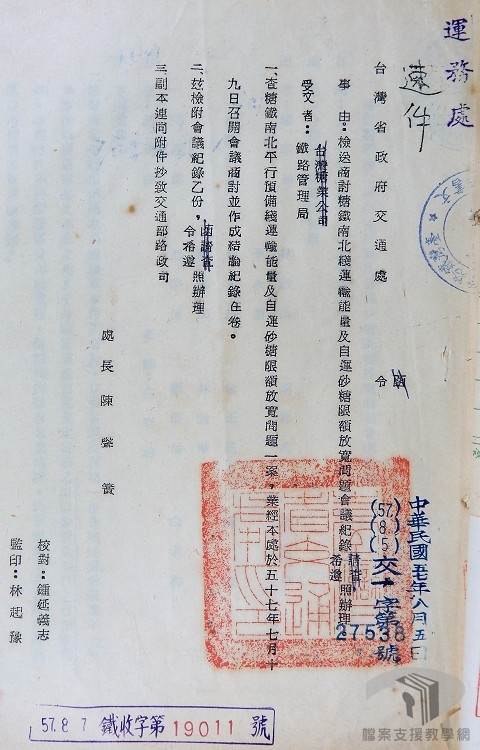 運務處
速件
台灣省政府交通處 令 函
中華民國五七年八月五日
(57.)(8.)(5) 交一字第27538號
事由：檢送商討糖鐵南北綫運輸能量及自運砂糖限額放寬問題會議紀錄，請查照辦理
希遵
受文者：台灣糖業公司
鐵路管理局
一、查糖鐵南北平行預備綫運輸能量及自運砂糖限額放寬問題一案，業經本處於五十七年七月十
九日召開會議商討並作成結論紀錄在卷。
二、玆檢附會議紀錄乙份，函請查照辦理
令希遵
三、副本連同附件抄致交通部路政司
處長陳聲簧
校對：鍾延義志
監印：林起豫
57. 8 7 鐵收字第19011號
檔案支援教學網